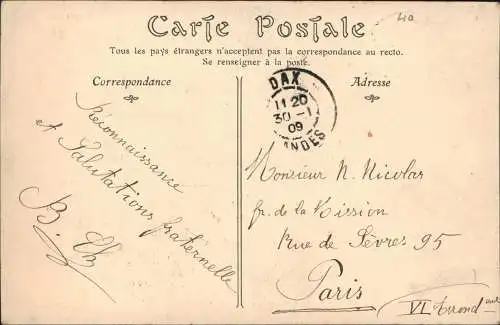 Carte Postale
40
Tous les pays étrangers n'acceptent pas la correspondance au recto.
Se renseigner à la poste.
Correspondance
Adresse
DAX
11 20
30 -1
09
LANDES
Réconnaissance
et Salutations fraternelle
B. Ch
Monsieur N. Nicolas
fr. de la Mission
Rue de Sèvres 95
Paris
VI